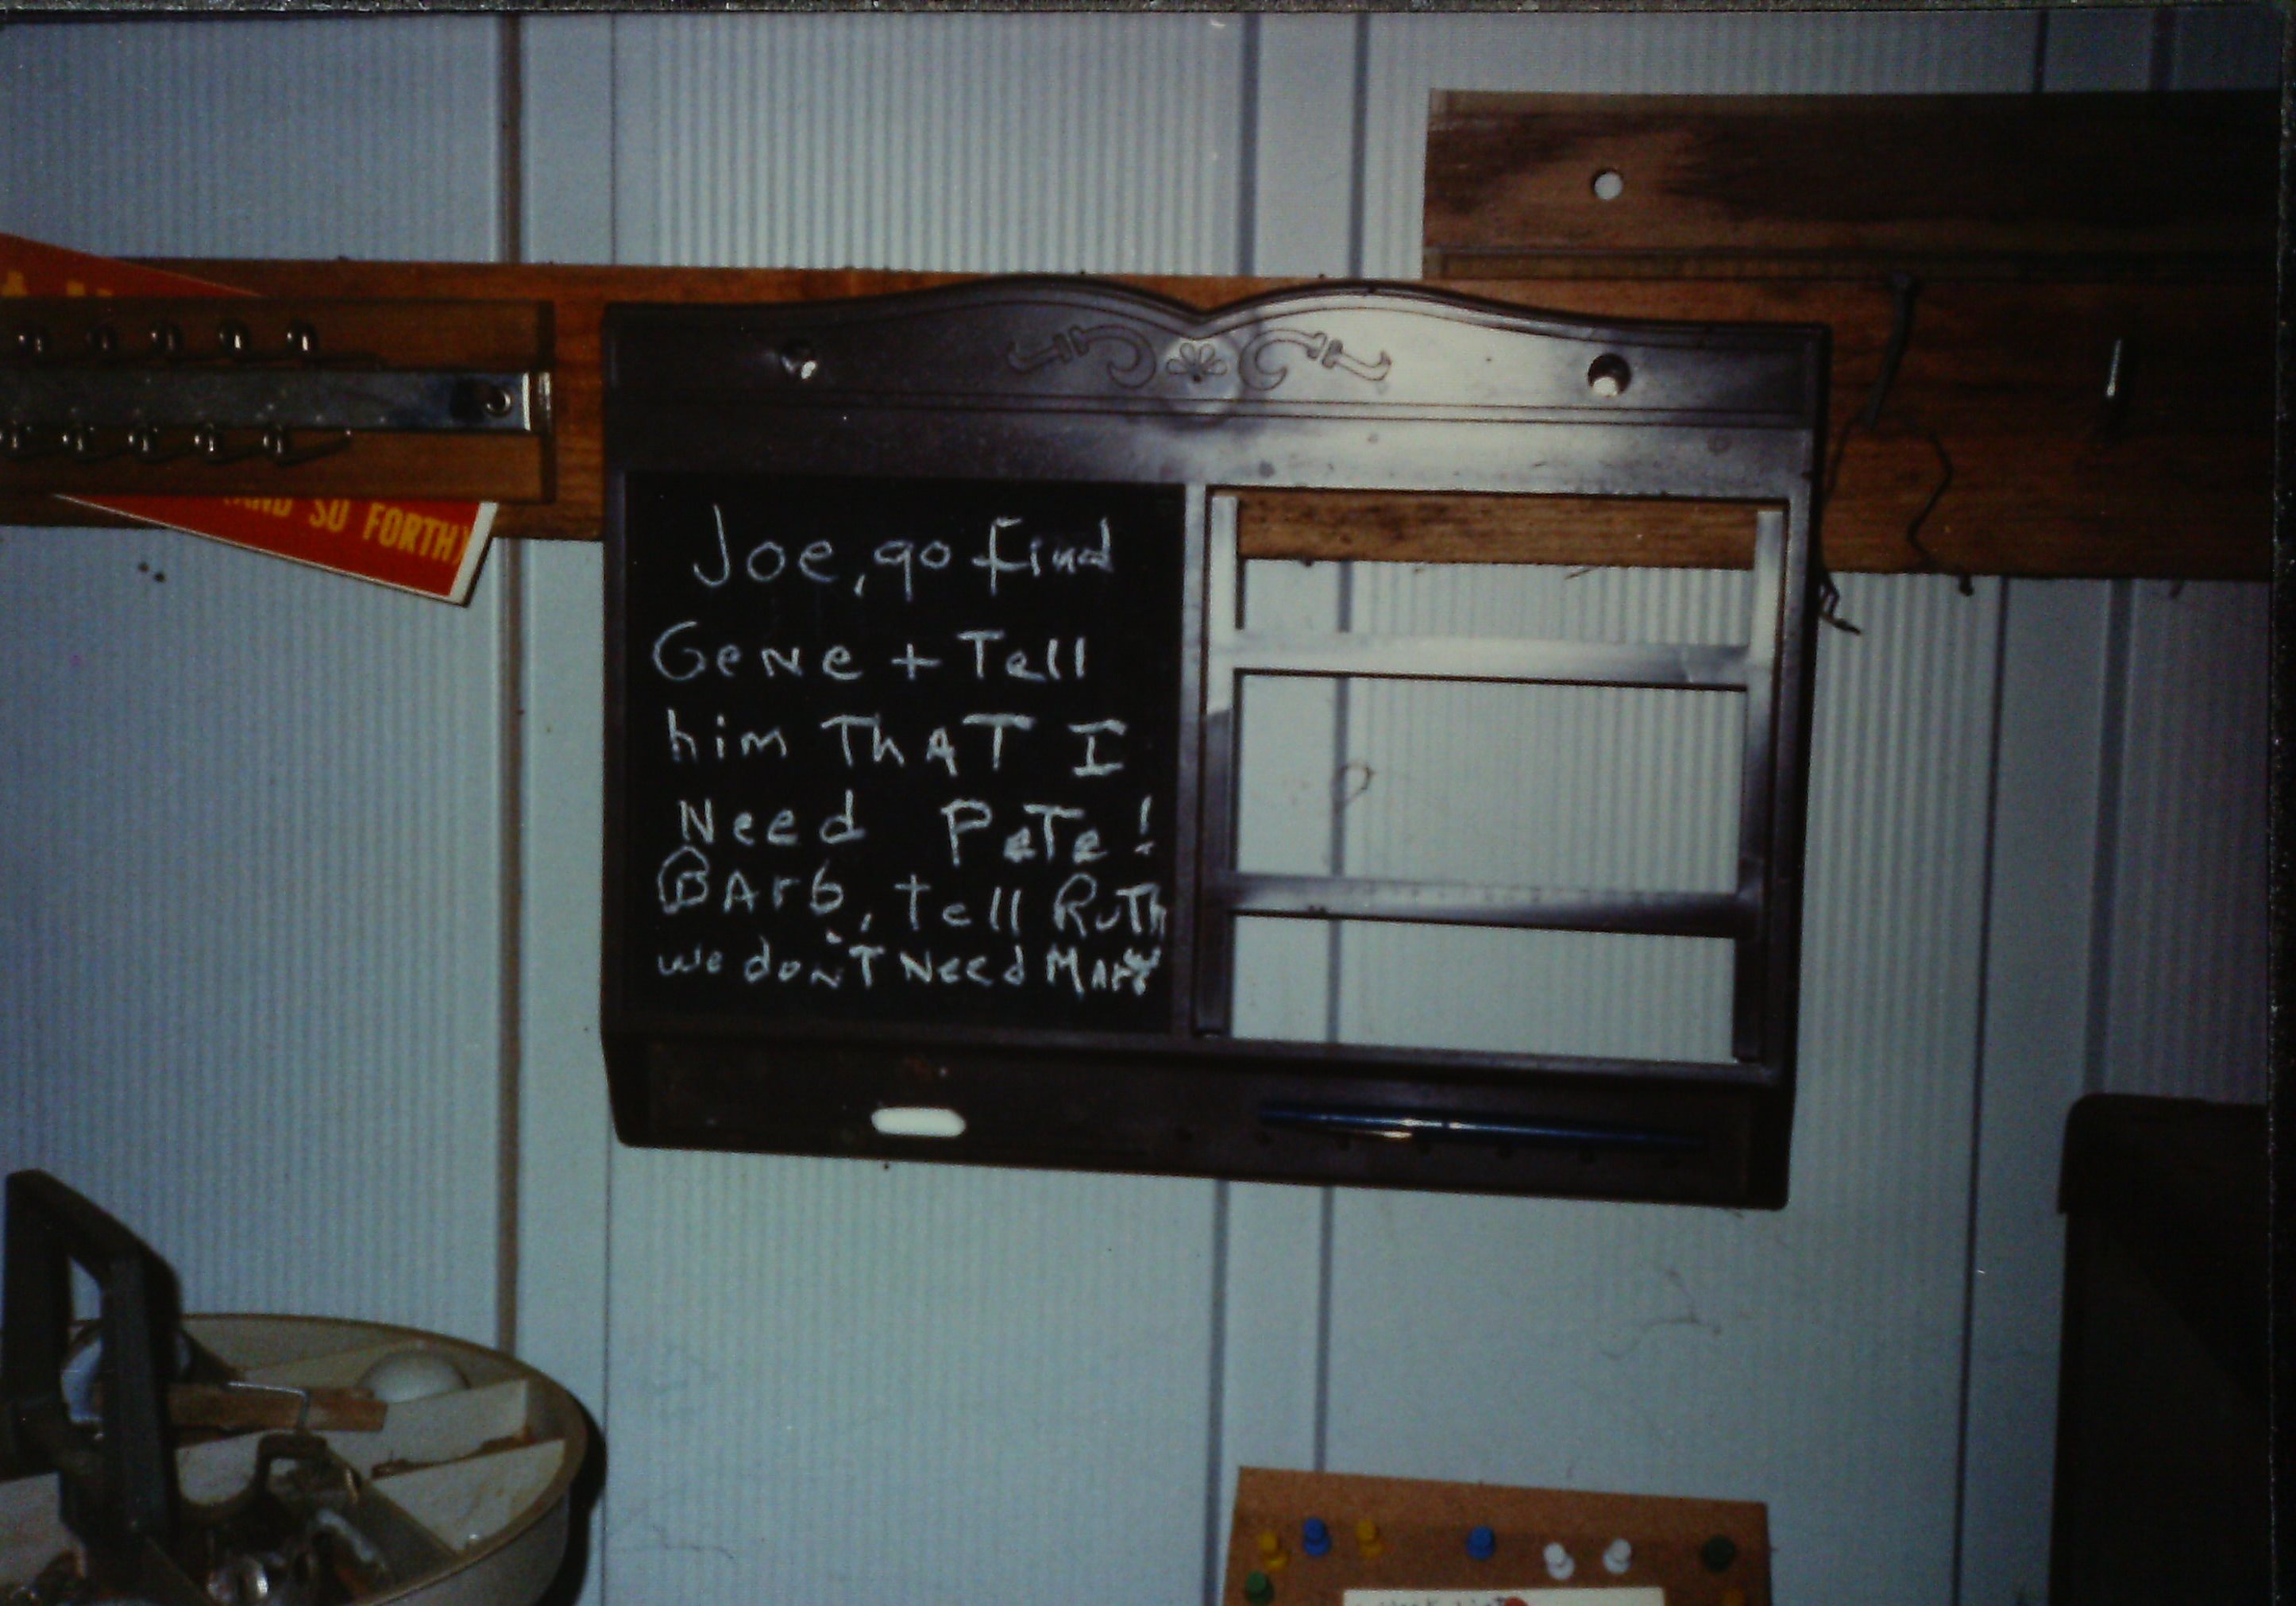 (AND SO FORTH)
Joe, go find
GeNe + Tell
him ThAT I
Need PeTe!
BArb, tell RuTh
we doN'T Need MArk